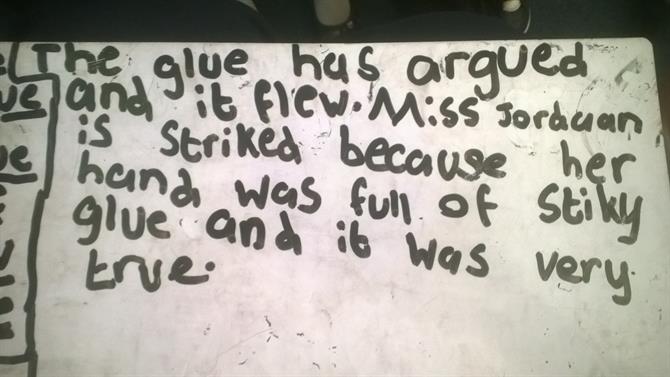 The glue has argued
and it flew. Miss Jorduan
is striked because her
hand was full of stiky
glue and it was very
true.